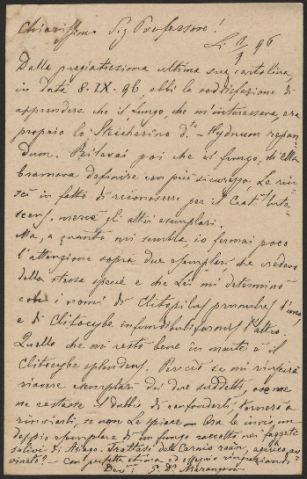 Chiarissimo Sig Professore!
Li 9/9 96
Dalla pregiatissima ultima sua cartolina,
in data 8. IX. 96, ebbi la soddisfazione di
apprendere che il fungo, che m'interessava, era
proprio lo Steccherino d.to Hydnum repan-
dum. Rilevai poi che il fungo, di Ella
bramava definire con più sicurezza, Le riu-
scì in fatto di riconoscere per il Cant. lute
scens. mercè gli altri esemplari.
Ma, a quanto mi sembra, io fermai poco
l'attenzione sopra due esemplari che credevo
della stessa specie e che Lei mi determinò
coi nomi di Clitopilus prunulus l'uno
e di Clitocybe infundibuliformis l'altro.
Quello che mi restò bene in mente è il
Clitocybe splendens. Perciò se mi riuscirà
riavere esemplari dei due suddetti, 
ne restasse il dubbio di confonderli, tornerò a
rinviarli, se non Le spiace. — Ora le invio un
doppio esemplare di un fungo raccolto nei faggeti
solivi di Asiago. Trattasi dell'
— con perfetta stima
Dev. S. D. Maranzona